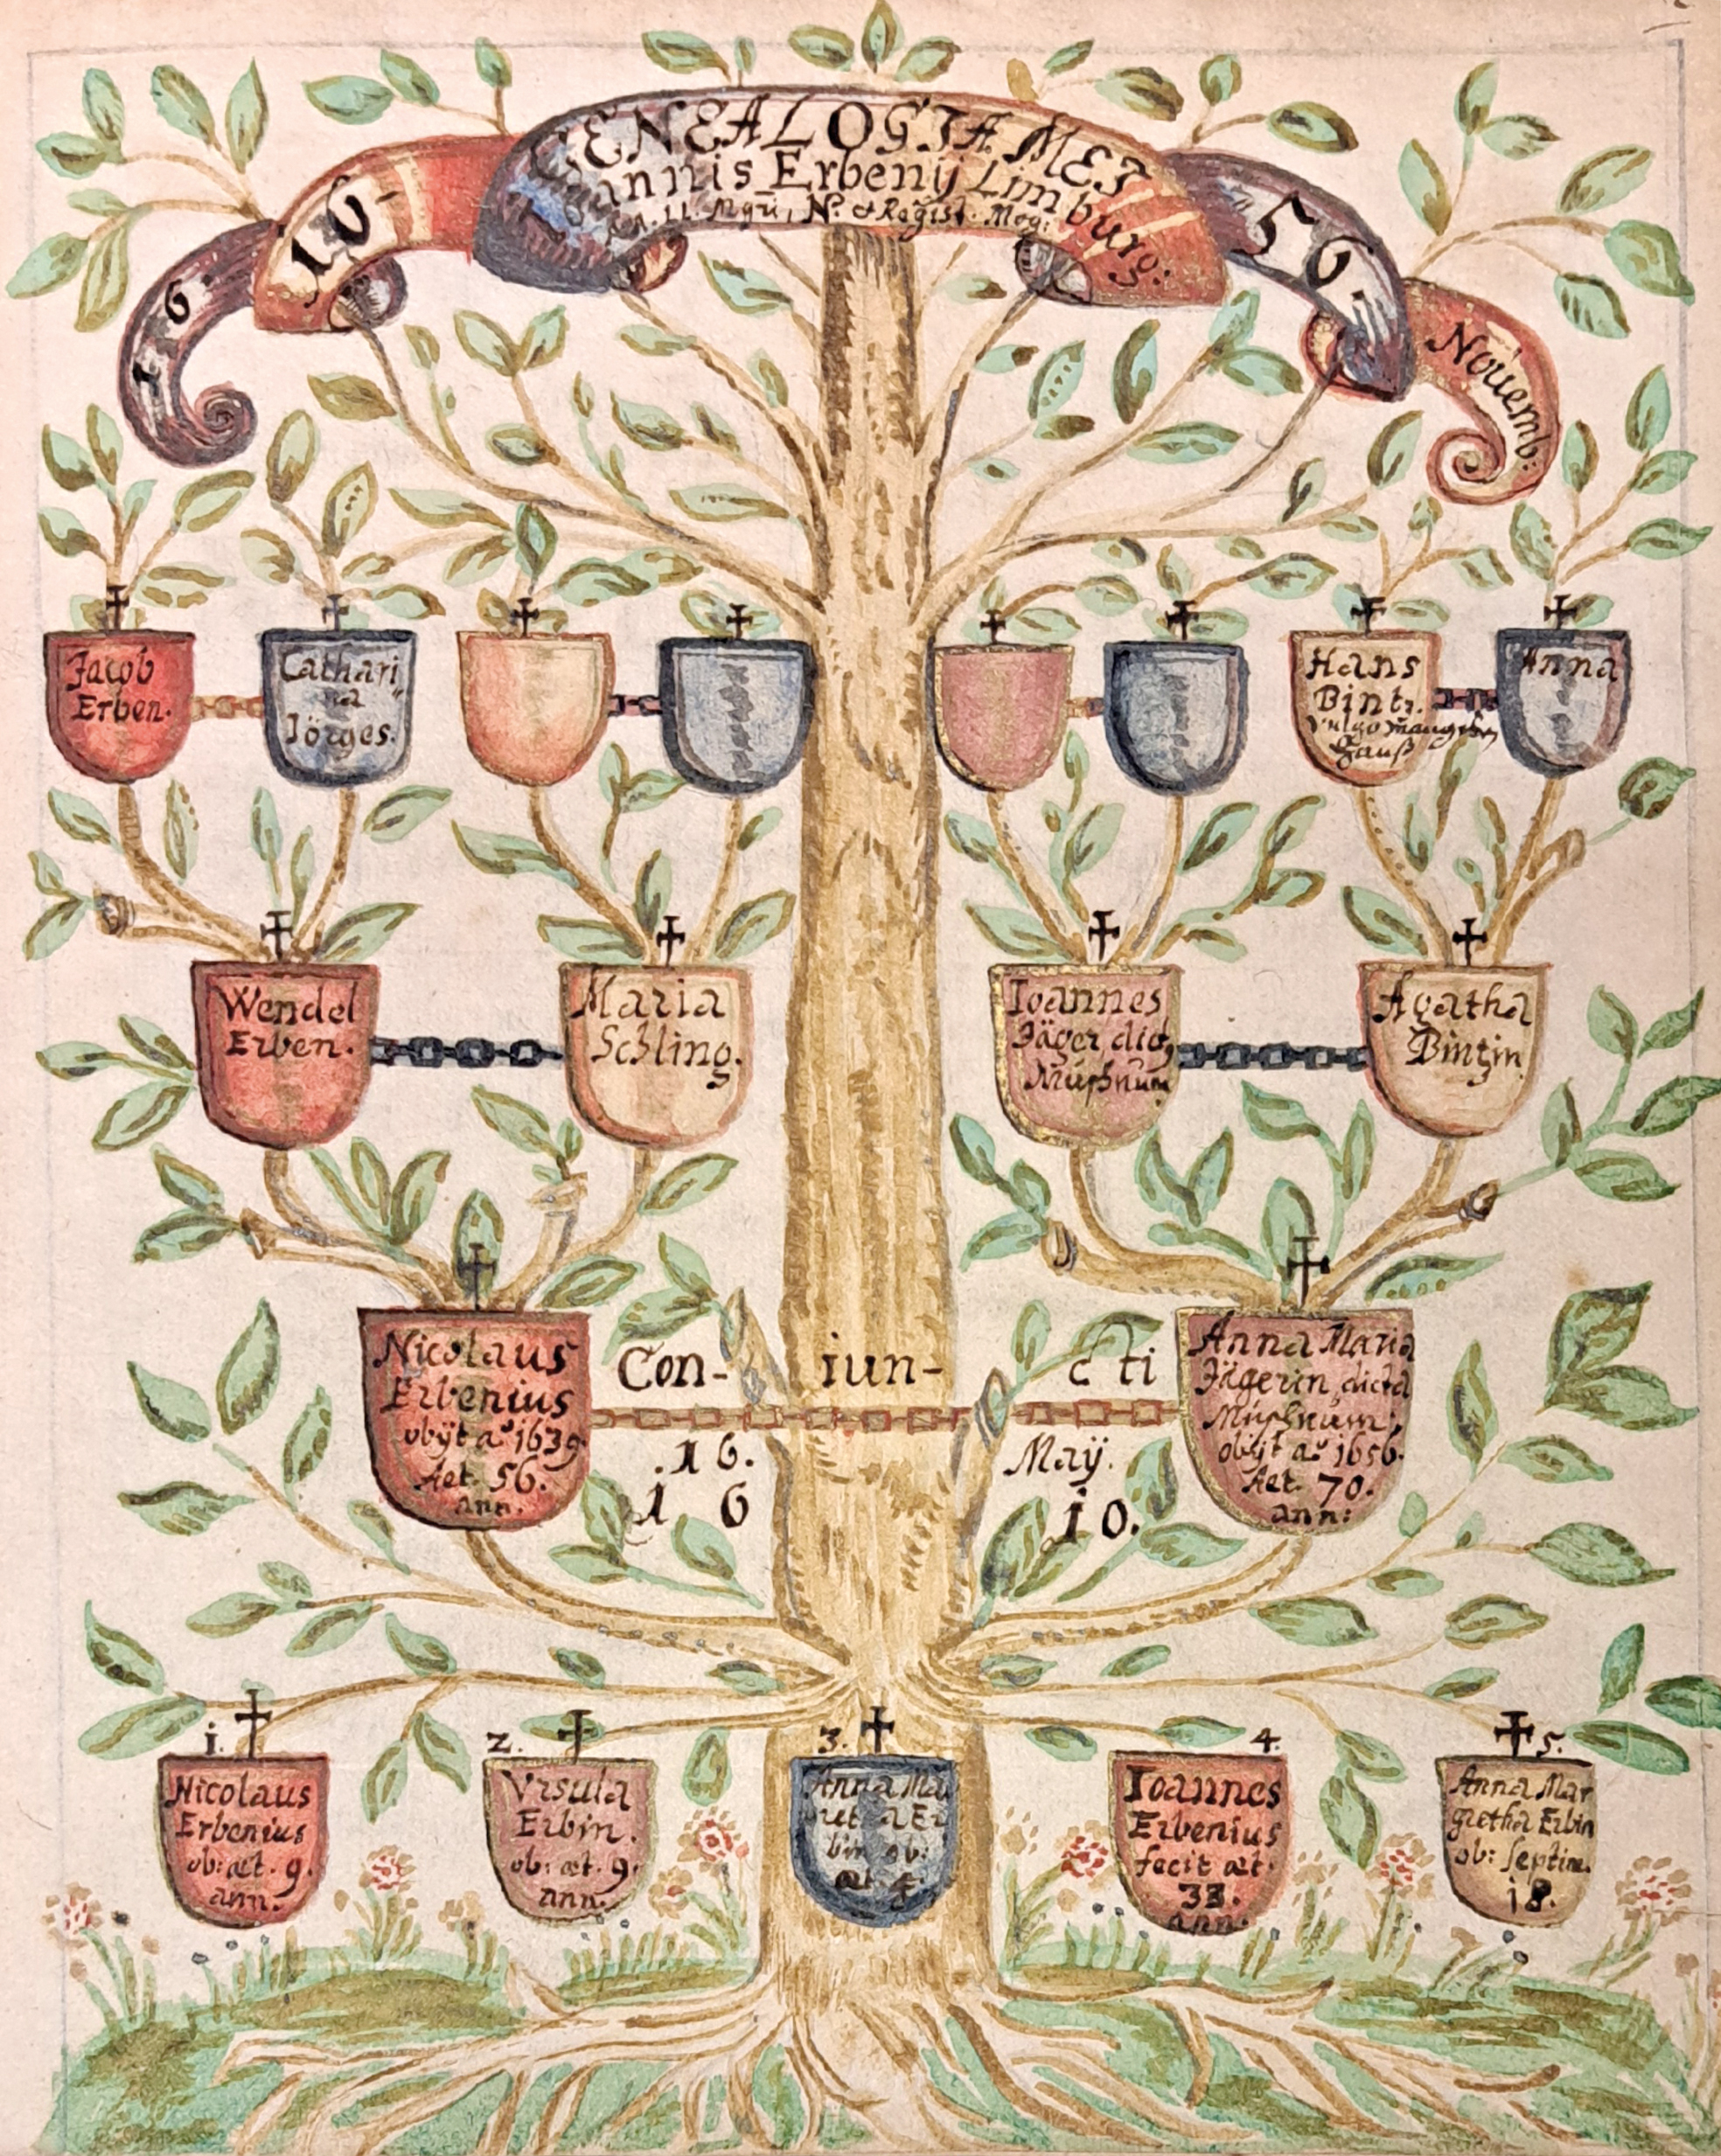 GENEALOGIA MEI
Joannis Erbenij Limburg:
N. & Regist. Mog:
16 10
50
Nouemb:
Jacob
Erben.
Cathari
na
Jörges.
Hans
Bintz.
vulgo
Hauß
Anna
Wendel
Erben.
Maria
Schling.
Ioannes
Jäger, dict,
Agatha
Bintzin
Nicolaus
Erbenius
obijt aº 1639
Aet. 56.
ann.
Con- iun- cti
.16. Maÿ.
1 6 10.
Anna Maria
Jägerin, dicta
obijt aº 1656.
Aet. 70.
ann:
1.
Nicolaus
Erbenius
ob: æt. 9.
ann.
2.
Vrsula
Erbin.
ob: æt. 9.
ann.
3.
Anna Ma
bin ob:
æt. 4.
4.
Ioannes
Erbenius
fecit æt.
33.
ann.
5.
Anna Mar
gretha Erbin
ob: septim.
18.